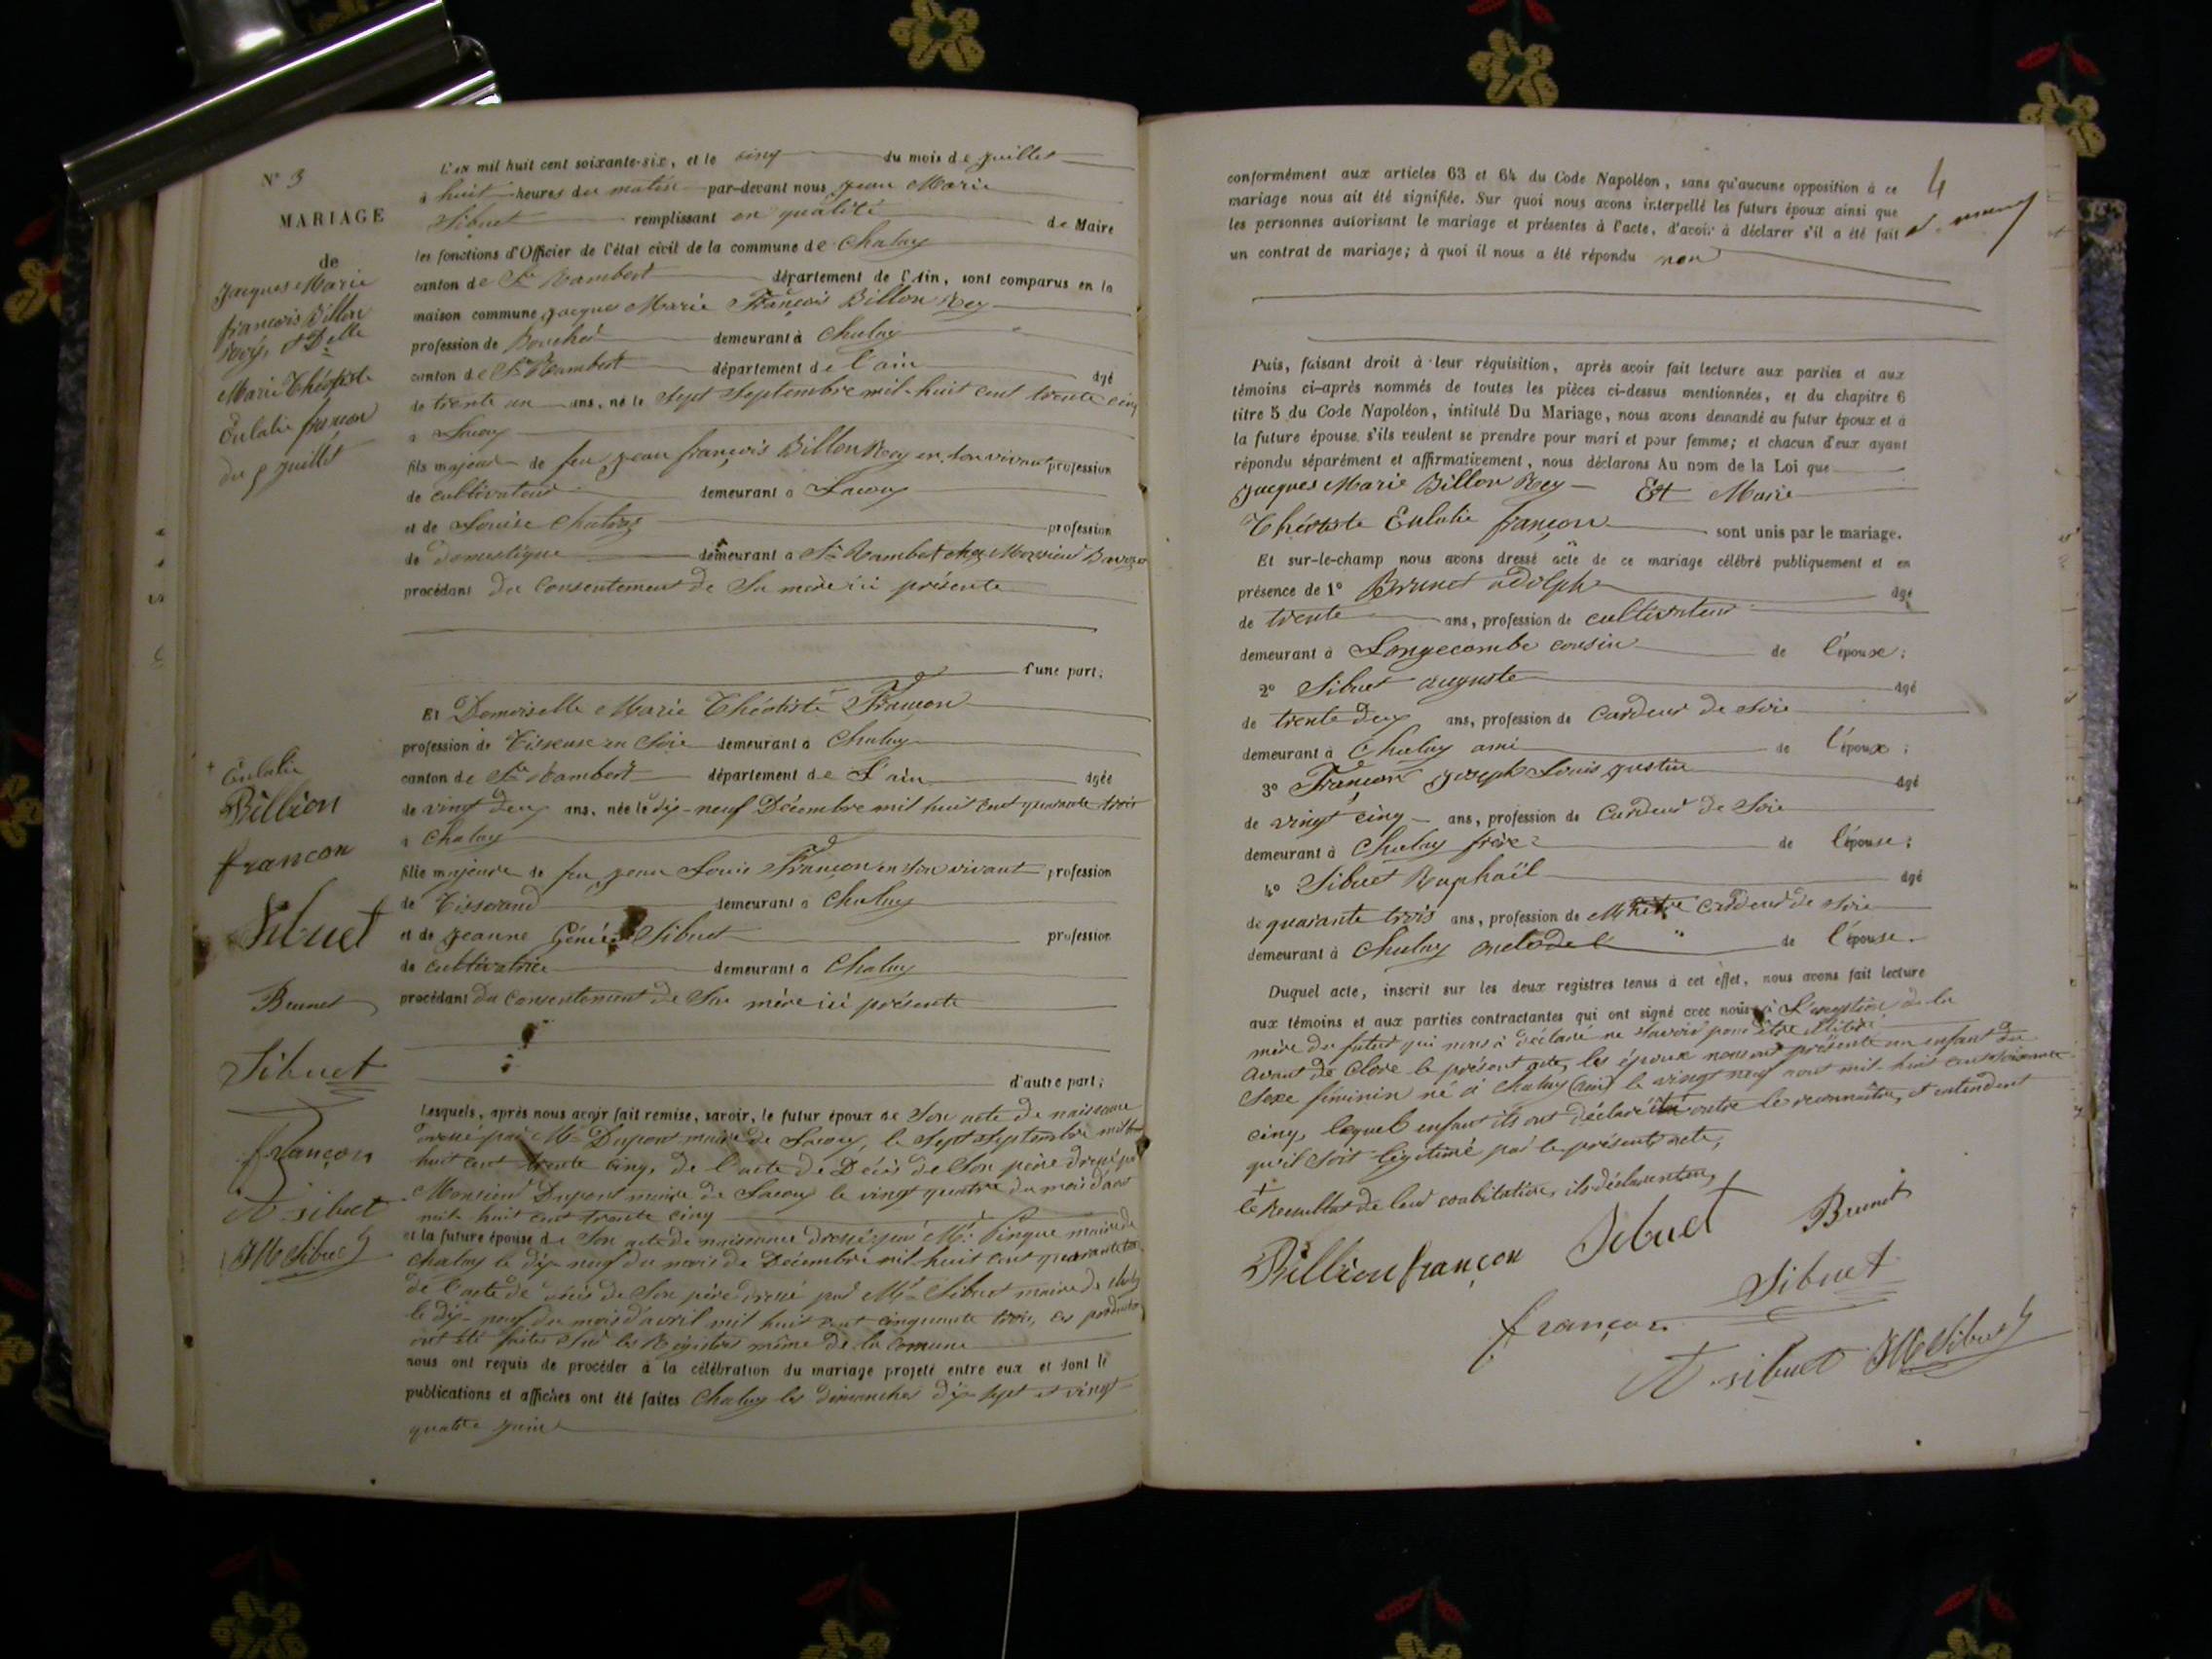 N° 3
MARIAGE
de
Jacques Marie
françois Billon
Rey, et Delle
Marie Théotiste
Eulalie françon
du 5 juillet
L'an mil huit cent soixante-six, et le cinq du mois de juillet
à huit heures du matin par-devant nous Jean Marie
Sibuet remplissant en qualité de Maire
les fonctions d'Officier de l'état civil de la commune de Chaley
canton de St Rambert département de l'Ain, sont comparus en la
maison commune Jacques Marie François Billon Rey
profession de Boucher demeurant à Chaley
canton de St Rambert département de l'ain âgé
de trente un ans, né le sept Septembre mil-huit cent trente cinq
à Lacoux
fils majeur de feu jean françois Billon Rey en son vivant profession
de cultivateur demeurant à Lacoux
et de Louise profession
de Domestique demeurant à St Rambert chez Monsieur
procédant du consentement de Sa mère ici présente
d'une part;
Et Demoiselle Marie Théotiste Françon
profession de Tisseuse en Soie demeurant à Chaley
canton de St Rambert département de L'ain âgée
de vingt deux ans, née le dix-neuf Décembre mil huit cent quarante trois
à Chaley
fille majeure de feu jean Louis Françon en son vivant profession
de Tisserand demeurant à Chaley
et de jeanne Sibuet profession
de cultivatrice demeurant à Chaley
procédant du consentement de Sa mère ici présente
d'autre part;
+ Eulalie
Billion
françon
Sibuet
Brunet
Sibuet
françon
A. sibuet
JM Sibuet
Lesquels, après nous avoir fait remise, savoir, le futur époux de Son acte de naissance
dressé par Mr Dupont maire de Lacoux, le sept septembre mil
huit cent trente cinq, de l'acte de Décès de Son père dressé par
Monsieur Dupont maire de Lacoux le vingt quatre du mois d'août
mil huit cent trente cinq
et la future épouse de Son acte de naissance dressé par Mr Pingue maire de
Chaley le dix-neuf du mois de Décembre mil-huit cent quarante trois
de l'acte de décès de Son père dressé par Mr Sibuet maire de Chaley
le dix-neuf du mois d'avril mil huit cent cinquante trois, ces
ont été faites Sur les Registres même de la Comune
nous ont requis de procéder à la célébration du mariage projeté entre eux et dont le
publications et affiches ont été faites Chaley les dimanches dix-sept et vingt
quatre juin
4
conformément aux articles 63 et 64 du Code Napoléon, sans qu'aucune opposition à ce
mariage nous ait été signifiée. Sur quoi nous avons interpellé les futurs époux ainsi que
les personnes autorisant le mariage et présentes à l'acte, d'avoir à déclarer s'il a été fait
un contrat de mariage; à quoi il nous a été répondu non
Puis, faisant droit à leur réquisition, après avoir fait lecture aux parties et aux
témoins ci-après nommés de toutes les pièces ci-dessus mentionnées, et du chapitre 6
titre 5 du Code Napoléon, intitulé Du Mariage, nous avons demandé au futur époux et à
la future épouse s'ils veulent se prendre pour mari et pour femme; et chacun d'eux ayant
répondu séparément et affirmativement, nous déclarons Au nom de la Loi que
Jacques Marie Billon Rey Et Marie
Théotiste Eulalie françon sont unis par le mariage.
Et sur-le-champ nous avons dressé acte de ce mariage célébré publiquement et en
présence de 1° Brunet adolphe âgé
de trente ans, profession de cultivateur
demeurant à Longecombe cousin de l'épouse;
2° Sibuet auguste âgé
de trente deux ans, profession de Cardeur de Soie
demeurant à Chaley ami de l'époux;
3° Françon joseph Louis justin âgé
de vingt cinq ans, profession de Cardeur de Soie
demeurant à Chaley frère de l'épouse;
4° Sibuet Raphaël âgé
de quarante trois ans, profession de Maître Cardeur de Soie
demeurant à Chaley oncle de l' " de l'épouse.
Duquel acte, inscrit sur les deux registres tenus à cet effet, nous avons fait lecture
aux témoins et aux parties contractantes qui ont signé avec nous à L'exeption de la
mère du futur qui nous à déclaré ne Savoir pour être illitéré
avant de Clore le présent acte, les époux nous ont présenté un enfant du
Sexe féminin né à Chaley (ain) le vingt neuf août mil-huit cent soixante
cinq, lequel enfant ils ont déclaré être outre le reconnaître, et entendent
qu'il Soit légitimé par le présent acte,
+
le Resultat de leur coabitation, ils déclarent en
Billion françon Sibuet Brunet
Sibuet
françon
A. sibuet JM Sibuet